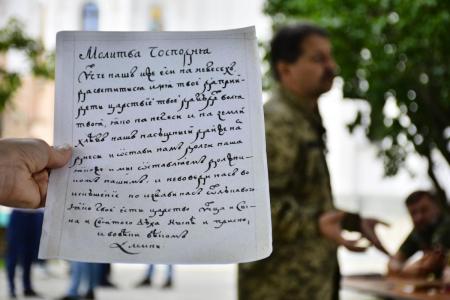 Молитва Господня
Отче нашъ иже еси на небесехъ
да святится имя твое да прїи
детъ царствїе твое да будетъ воля
твоя, яко на небеси и на земли
хлѣбъ нашъ насущный даждь на
днесь и остави намъ долги наша
якоже и мы оставляемъ должни
комъ нашимъ, и невоведи насъ во
искушение но избави насъ от лукаваго
яко твое есть царство Отца и Сы
на и святаго духа нынѣ и присно,
и вовѣки вѣковъ
Аминь